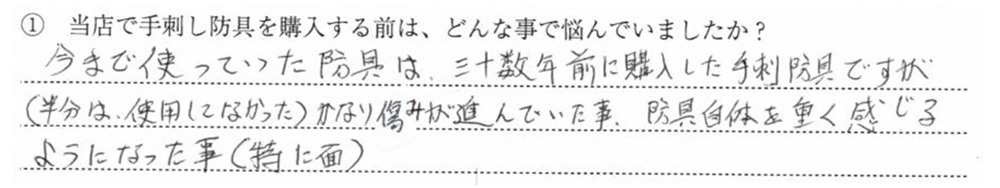 ① 当店で手刺し防具を購入する前は、どんな事で悩んでいましたか？
今まで使っていった防具は、三十数年前に購入した手刺防具ですが
(半分は、使用してなかった)かなり傷みが進んでいた事、防具自体を重く感じる
ようになった事(特に面)